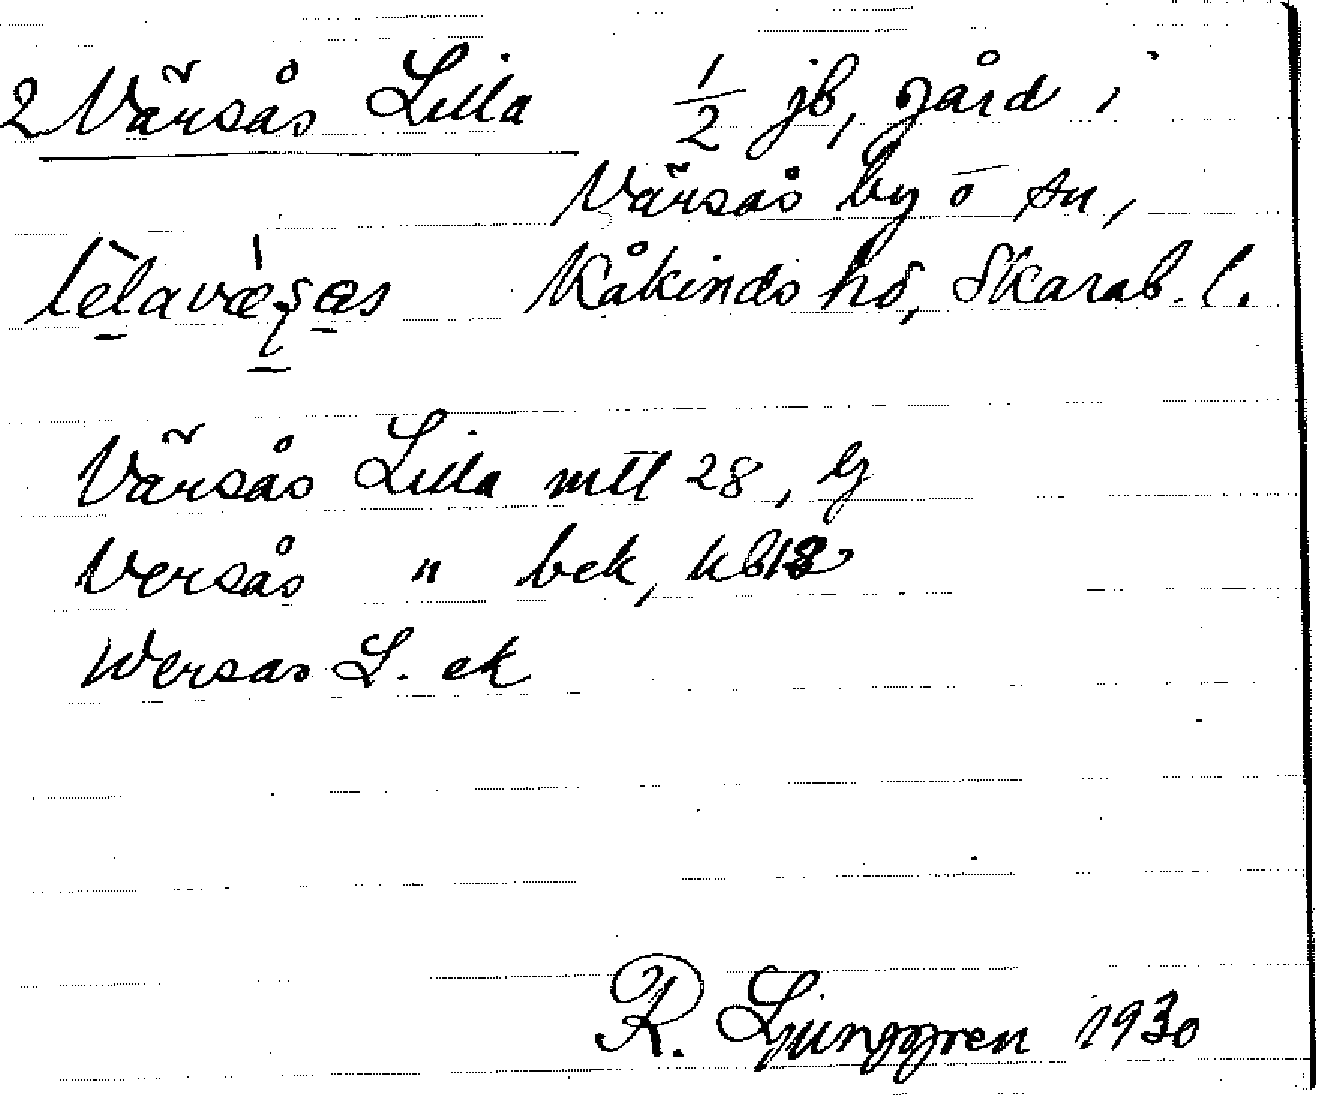 2 Värsås Lilla ½ jb, gård i
Värsås by o sn,
Kåkinds hd, Skarab. l.
Värsås Lilla mtl 28, Lj
Versås " bek, kb 18
Wersås L. ek
R. Ljunggren 1930